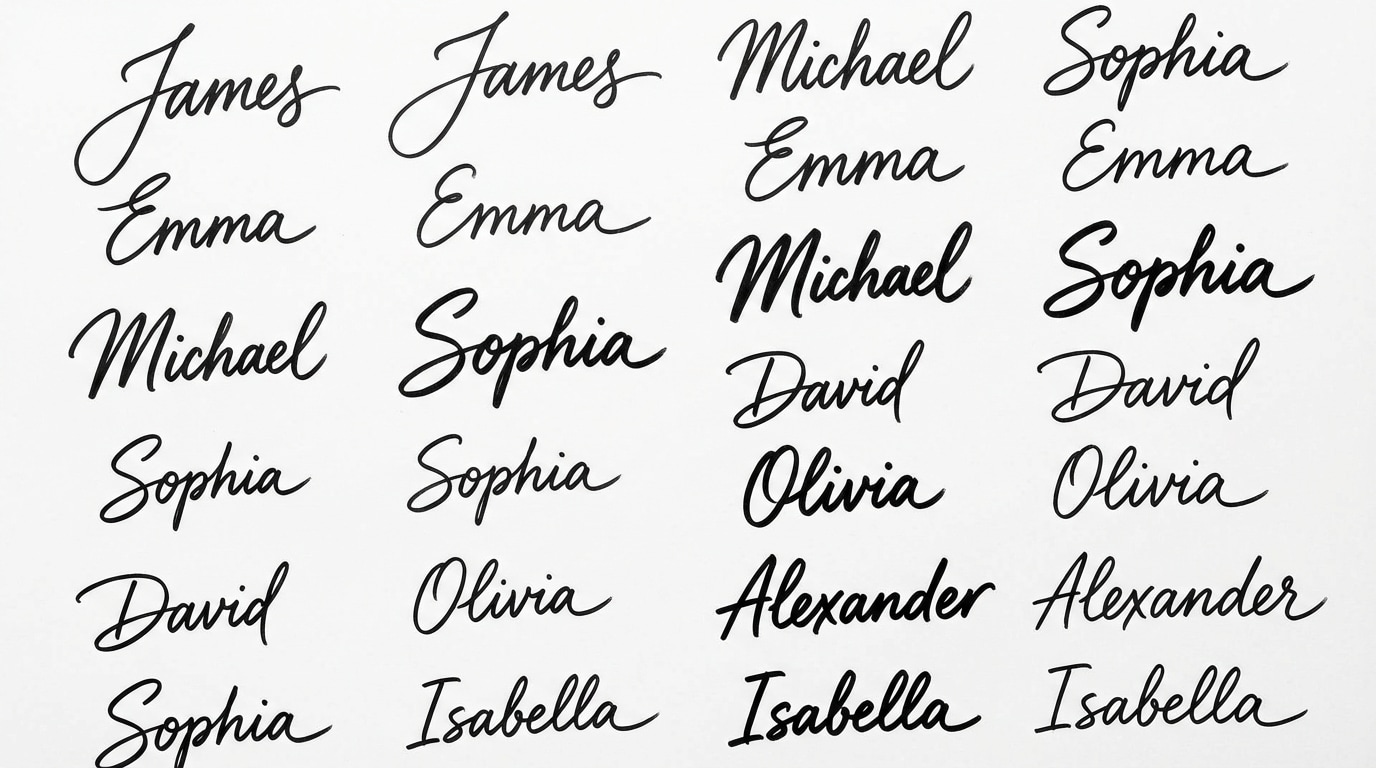 James
Emma
Michael
Sophia
David
Sophia
James
Emma
Sophia
Sophia
Olivia
Isabella
Michael
Emma
Michael
David
Olivia
Alexander
Isabella
Sophia
Emma
Sophia
David
Olivia
Alexander
Isabella